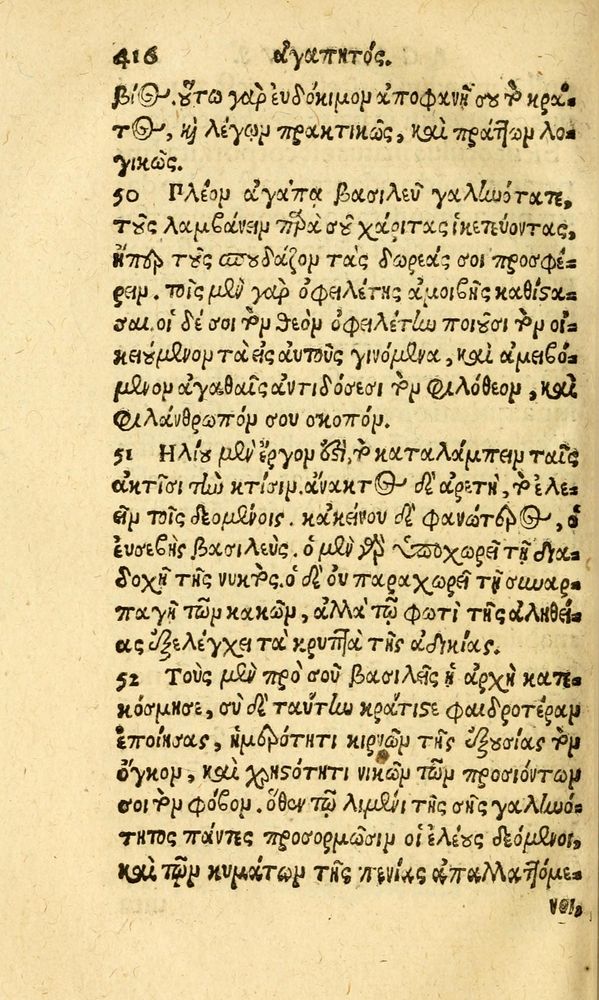 416 ἀγαπητός.
βίος. οὕτω γὰρ εὐδόκιμον ἀποφανῇ σου τὸ κρά-
τος, καὶ λέγων πρακτικῶς, καὶ πράττων λο-
γικῶς.
50 Πλέον ἀγάπα βασιλεῦ γαληνότατε,
τοὺς λαμβάνειν παρὰ σοῦ χάριτας ἱκετεύοντας,
ἤπερ τοὺς σπουδάζοντας δωρεάς σοι προσφέ-
ρειν. τοῖς μὲν γὰρ ὀφειλέτης ἀμοιβῆς καθίστα-
σαι. οἱ δέ σοι τὸν θεὸν ὀφειλέτην ποιοῦσι τὸν οἰ-
κειούμενον τὰ εἰς αὐτοὺς γινόμενα, καὶ ἀμειβό-
μενον ἀγαθαῖς ἀντιδόσεσι τὸν φιλόθεον, καὶ
φιλάνθρωπόν σου σκοπόν.
51 Ηλίου μὲν ἔργον ἐστὶ, τὸ καταλάμπειν ταῖς
ἀκτῖσι τὴν κτίσιν. ἄνακτος δὲ ἀρετὴ, τὸ ἐλε-
εῖν τοὺς δεομένοις. κἀκείνου δὲ φανώτερος, ὁ
εὐσεβὴς βασιλεύς. ὁ μὲν γὰρ ὑποχωρεῖ τῇ δια-
δοχῇ τῆς νυκτός. ὁ δὲ οὐ παραχωρεῖ τῇ συναρ-
παγῇ τῶν κακῶν, ἀλλὰ τῷ φωτὶ τῆς ἀληθεί-
ας ἐξελέγχει τὰ κρυπτὰ τῆς ἀδικίας.
52 Τοὺς μὲν πρὸ σοῦ βασιλεῖς ἡ ἀρχὴ κατε-
κόσμησε, σὺ δὲ ταύτην κράτιστε φαιδροτέραν
ἐποίησας, ἡμερότητι κιρνῶν τῆς ἐξουσίας τὸν
ὄγκον, καὶ χρηστότητι νικῶν τῶν προσιόντων
σοι τὸν φόβον. ὅθεν τῷ λιμένι τῆς σῆς γαληνό-
τητος πάντες προσορμῶσιν οἱ ἐλέους δεόμενοι,
καὶ τῶν κυμάτων τῆς πενίας ἀπαλλαττόμε-
νοι,